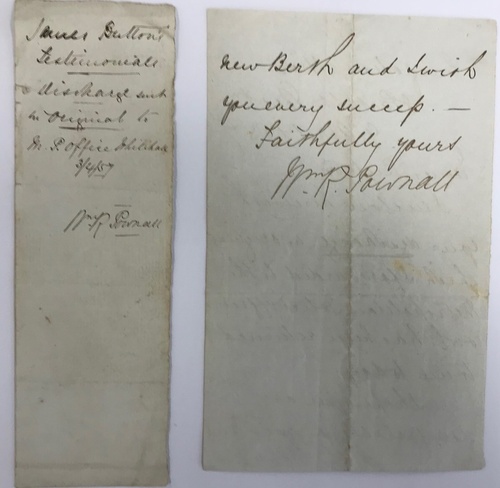 James Button's
Testimonials
& discharge sent
in original to
M. P. Office Whitehall
3/4/57
Wm R. Pownall
new Berth and I wish
you every success. —
Faithfully yours
Wm R. Pownall